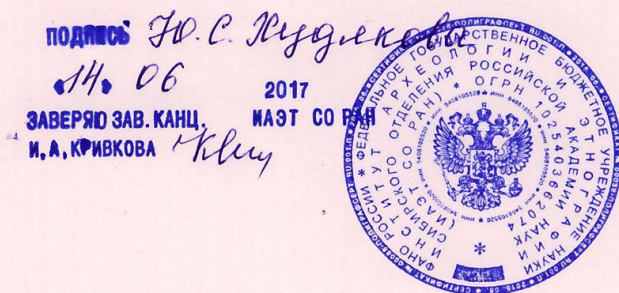 ПОДПИСЬ Ю. С. Худякова
«14» 06 2017
ЗАВЕРЯЮ ЗАВ. КАНЦ. ИАЭТ СО РАН
И.А. КРИВКОВА
ФАНО РОССИИ * ФЕДЕРАЛЬНОЕ ГОСУДАРСТВЕННОЕ БЮДЖЕТНОЕ УЧРЕЖДЕНИЕ НАУКИ
ИНСТИТУТ АРХЕОЛОГИИ И ЭТНОГРАФИИ
СИБИРСКОГО ОТДЕЛЕНИЯ РОССИЙСКОЙ АКАДЕМИИ НАУК
(ИАЭТ СО РАН) * ОГРН 1025403662074
* ИНН 5408105520